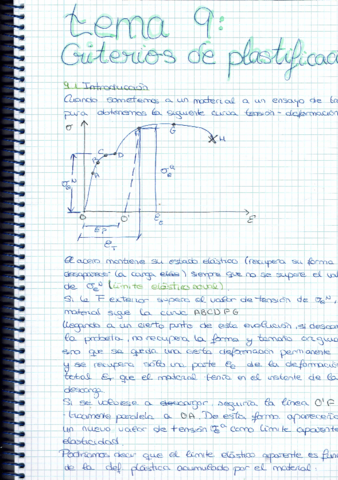 tema 9:
Criterios de plastificac
9.1 Introducción
Cuando sometemos a un material a un ensayo de
pura obtenemos la siguiente curva tensión-deformación
σ
G
H
C
D
B
A
O
O'
ε
εp
εe
εT
El acero mantiene su estado elástico (recupera su forma
desaparecer la carga) siempre que no se supere el val
de (límite elástico
Si la F exterior supera el valor de tensión de
material sigue la curva ABCDFG
llegando a un cierto punto de esta evolución, si descar
la probeta, no recupera la forma y tamaño origina
sino que se queda una cierta deformación permanente
y se recupera sólo una parte de la deformació
total εT que el material tenía en el instante de la
descarga
Si se volviese a descargar, seguiría la línea O'F
paralela a OA. De esta forma aparecería
un nuevo valor de tensión como límite aparente
elasticidad
Podríamos decir que el límite elástico aparente es fun
de la def. plástica acumulado por el material.